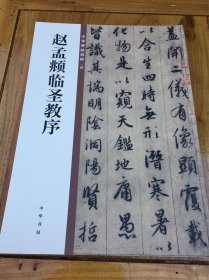 赵孟頫临圣教序
中华书局
盖闻二仪有像显覆
以含生四时无形潜寒暑以
化物是以窥天鉴地庸愚
皆识其端明阴洞阳贤哲